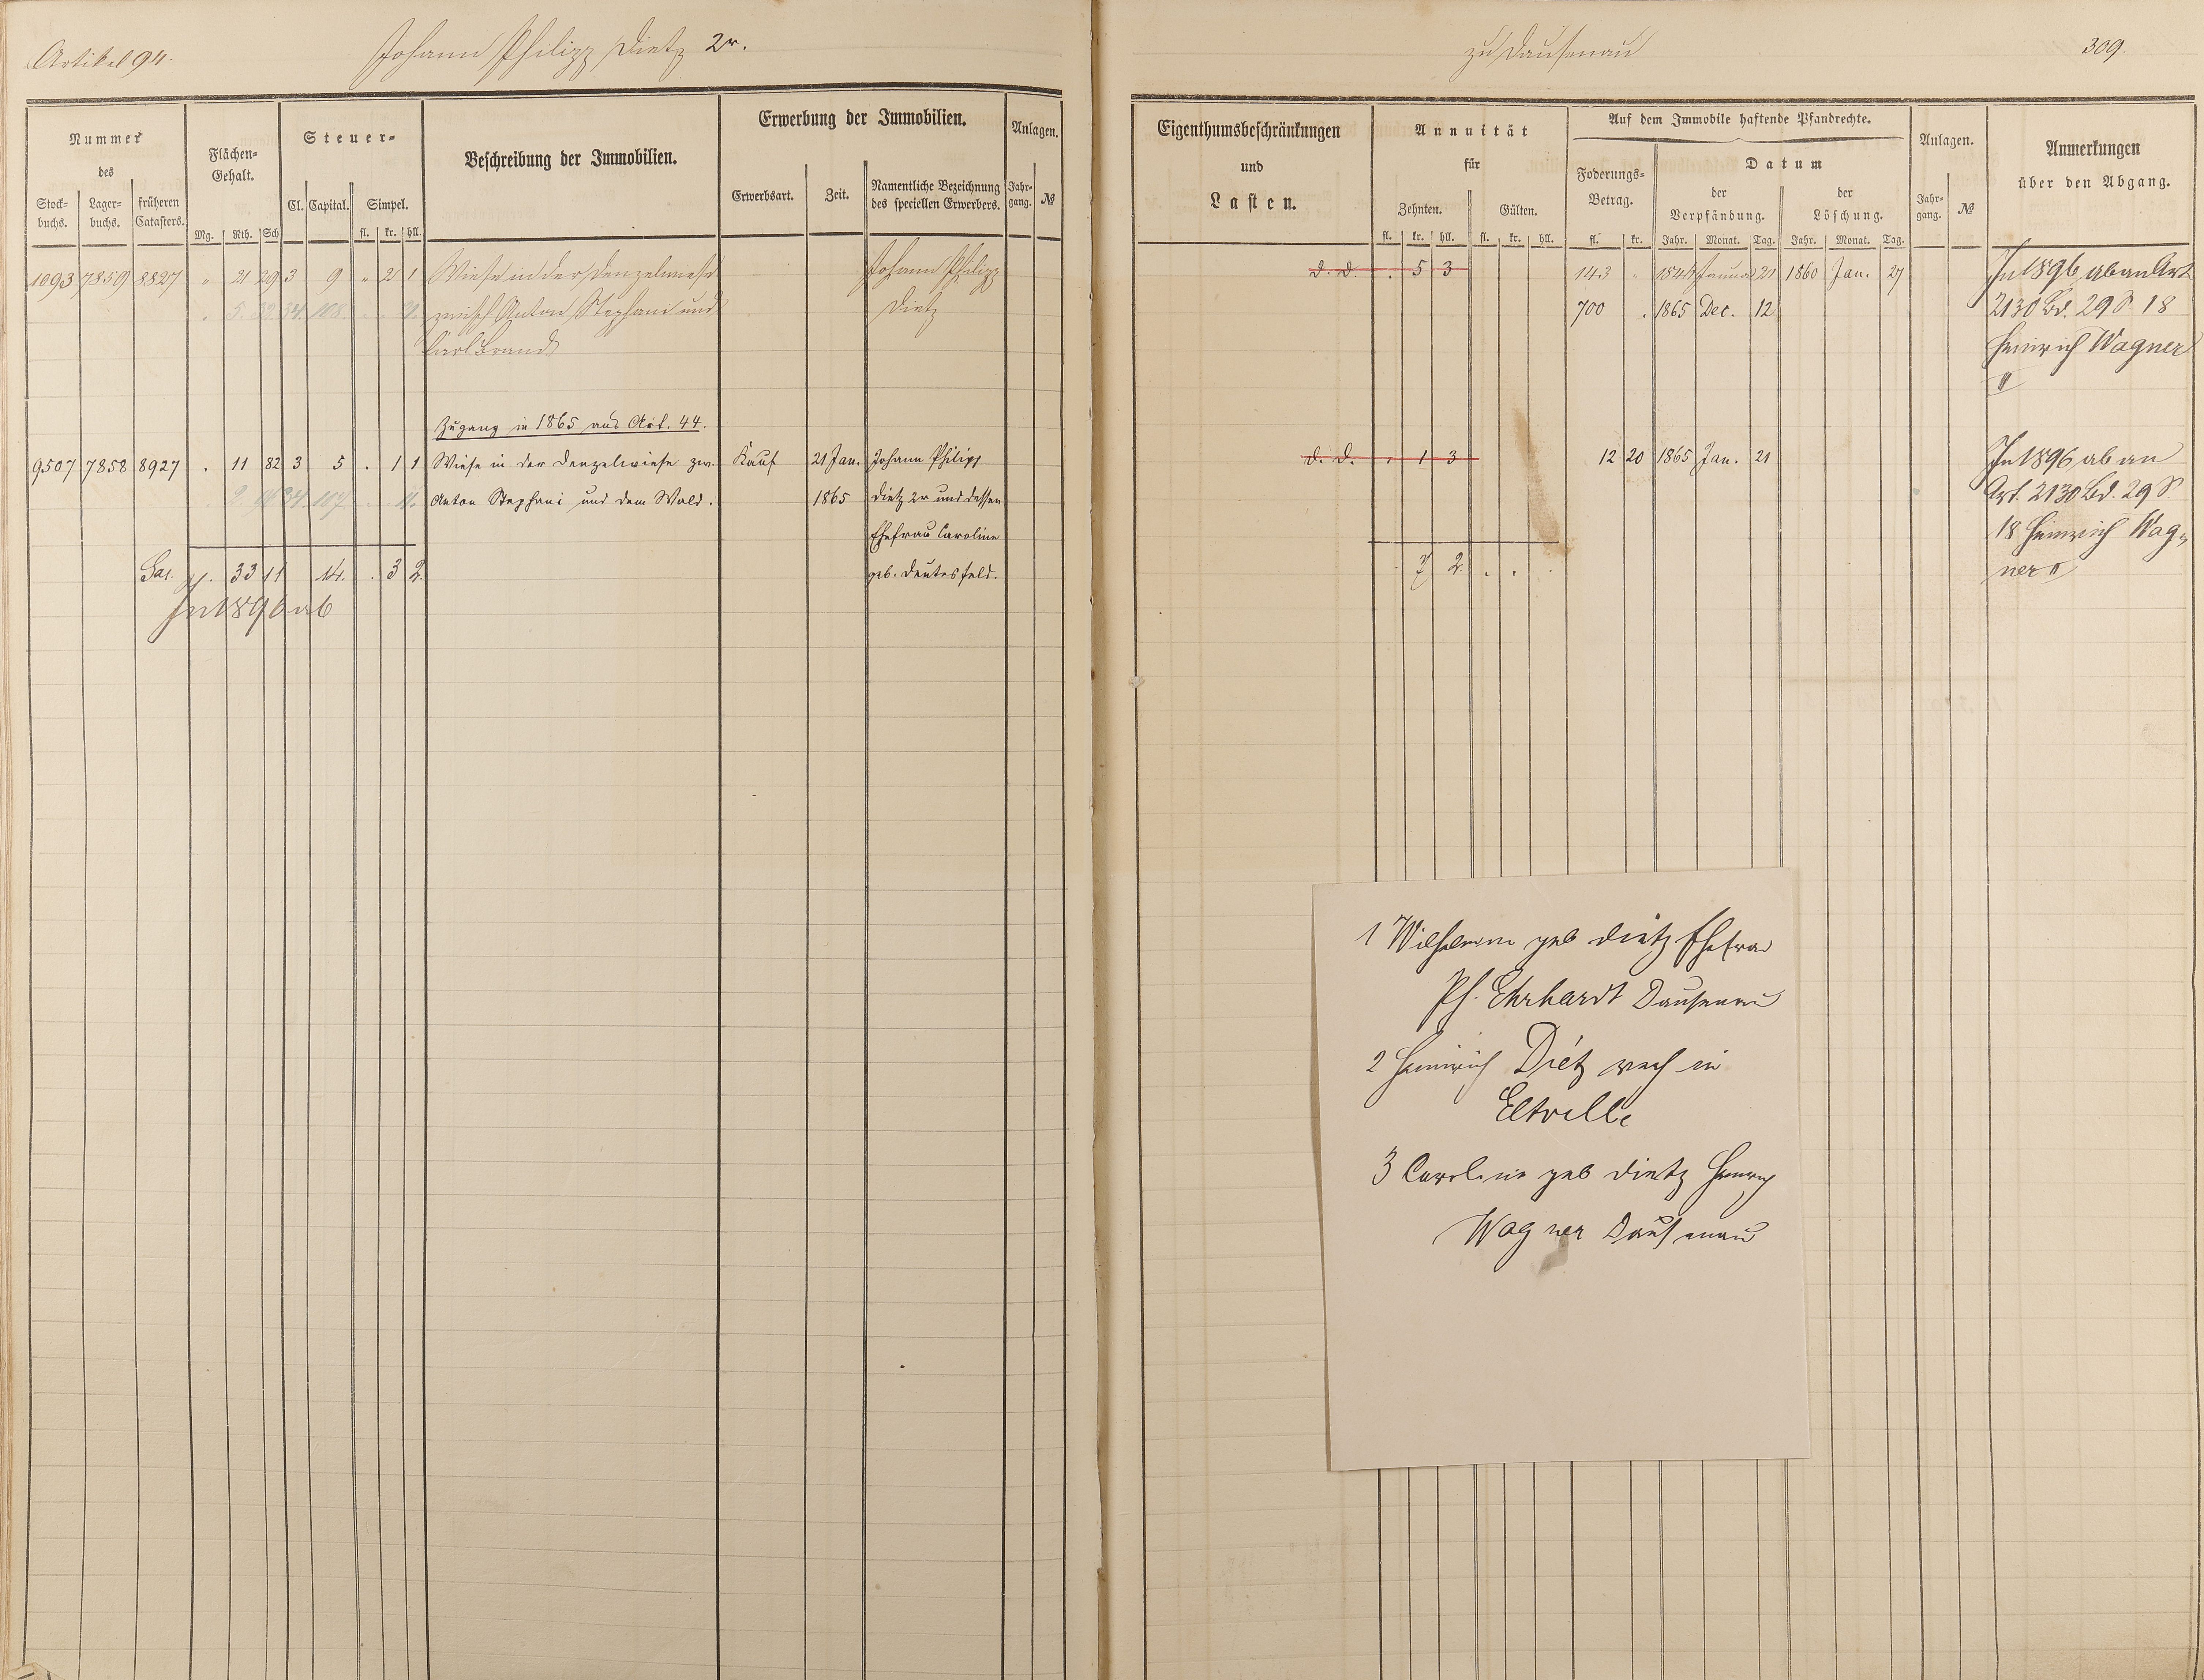 Artikel 94.
Johann Philipp Dietz 2r.
zu Dausenau
309.
Nummer
des
Stock-
buchs.
Lager-
buchs.
früheren
Catasters.
Flächen-
Gehalt.
Mg. Rth. Sch
Steuer-
Cl. Capital. Simpel.
fl. kr. hll.
Beschreibung der Immobilien.
Erwerbung der Immobilien.
Erwerbsart.
Zeit.
Namentliche Bezeichnung
des speciellen Erwerbers.
Anlagen.
Jahr-
gang.
№
1093 7859 8827 " 21 29 3 9 " 2 1 Wiese in der Denzelwiese Johann Philipp
zwisch Anton Stephani und Dietz
Carl Brand
Zugang in 1865 aus Art. 44.
9507 7858 8927 . 11 82 3 5 . 1 1 Wiese in der Denzelwiese zw. Kauf 21 Jan. Johann Philipp
Anton Stephani und dem Wald. 1865 Dietz 2r und dessen
Ehefrau Caroline
Sa. . 33 11 14. . 3 2 geb.
In 1896 ab
Eigenthumsbeschränkungen
und
Lasten.
Annuität
für
Zehnten. Gülten.
fl. kr. hll. fl. kr. hll.
Auf dem Immobile haftende Pfandrechte.
Foderungs-
Betrag.
fl. kr.
Datum
der
Verpfändung.
Jahr. Monat. Tag.
der
Löschung.
Jahr. Monat. Tag.
Anlagen.
Jahr-
gang.
№
Anmerkungen
über den Abgang.
d. d. . 5 3 143 " Januar 21 1860 Jan. 27 In 1896 ab an Art
700 . 1865 Dec. 12 2130 Bd. 29 S. 18
Heinrich Wagner
II
d. d. . 1 3 12 20 1865 Jan. 21 In 1896 ab an
Art. 2130 Bd. 29 S.
18 Heinrich Wag-
. 7 2 . . ner II
1 Wilhelmine geb Dietz Ehefrau
Ph. Ehrhardt Dausenau
2 Heinrich Dietz in
Eltville
3 Caroline geb Dietz Heinrich
Wagner Dausenau